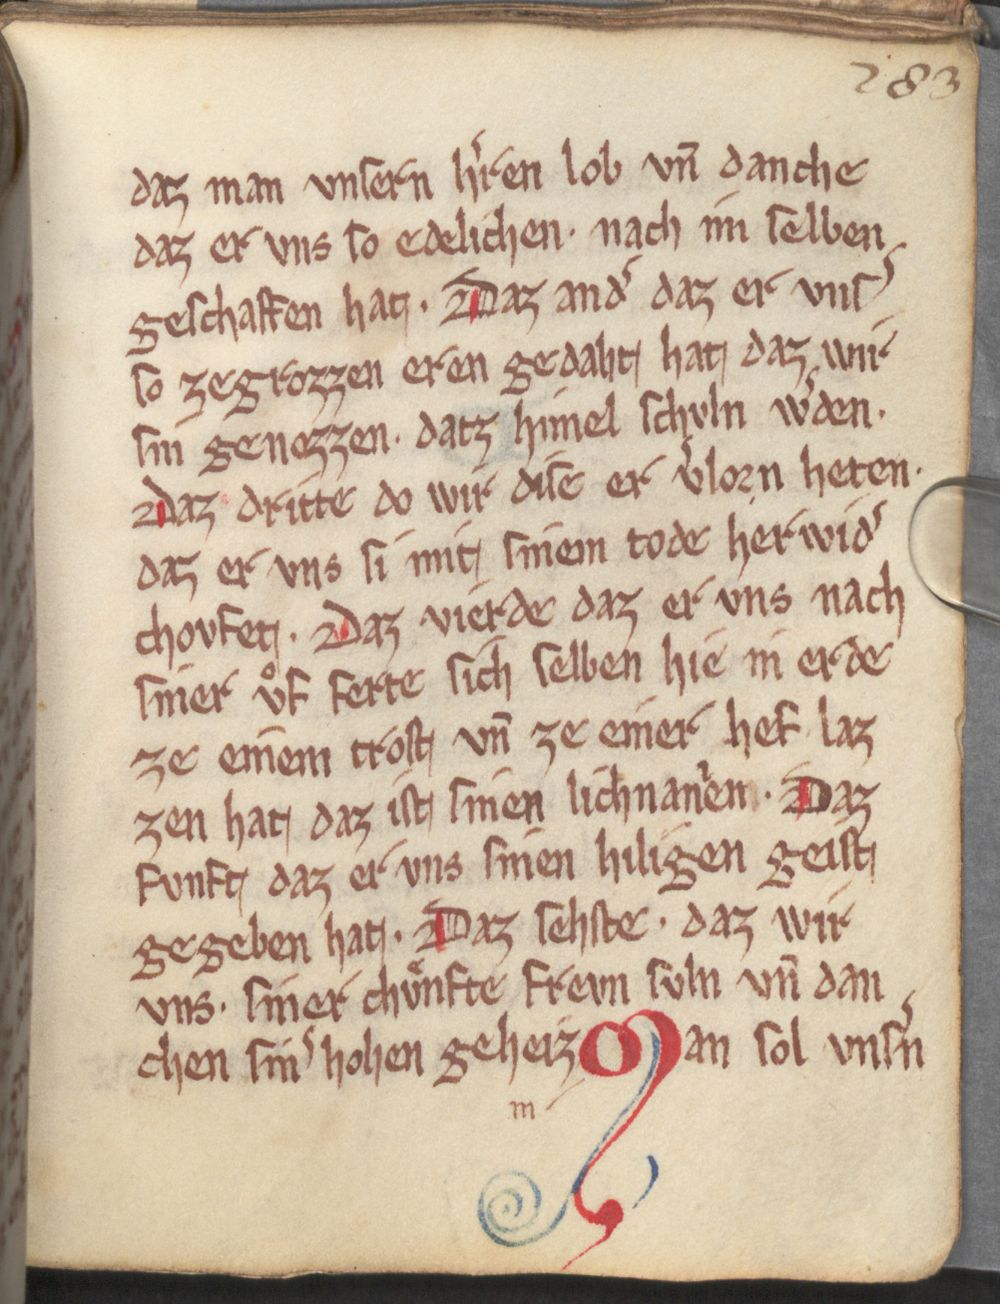 283
daz man vnsern hʼren lob vn̄ danche
daz er vns so edelichen· nach im selben
geschaffen hat· Daz andʼ daz er vnsʼ
so zegrozzen eren gedaht hat daz wir
sin genezzen· datz himel schvln wʼden·
Daz dritte do wir dise er vʼlorn heten·
daz er vns si mit sinem tode herwidʼ
chovfet· Daz vierde daz er vns nach
siner vͦf ferte sich selben hie in erde
ze einem trost vn̄ ze einer hef laz
zen hat daz ist sinen lichnanʼem· Daz
funft daz er vns sinen hiligen geist
gegeben hat· Daz sehste· daz wir
vns· siner chvͤnfte frevn svln vn̄ dan
chen sinʼ hohen geheiz Man sol vnsʼn
m